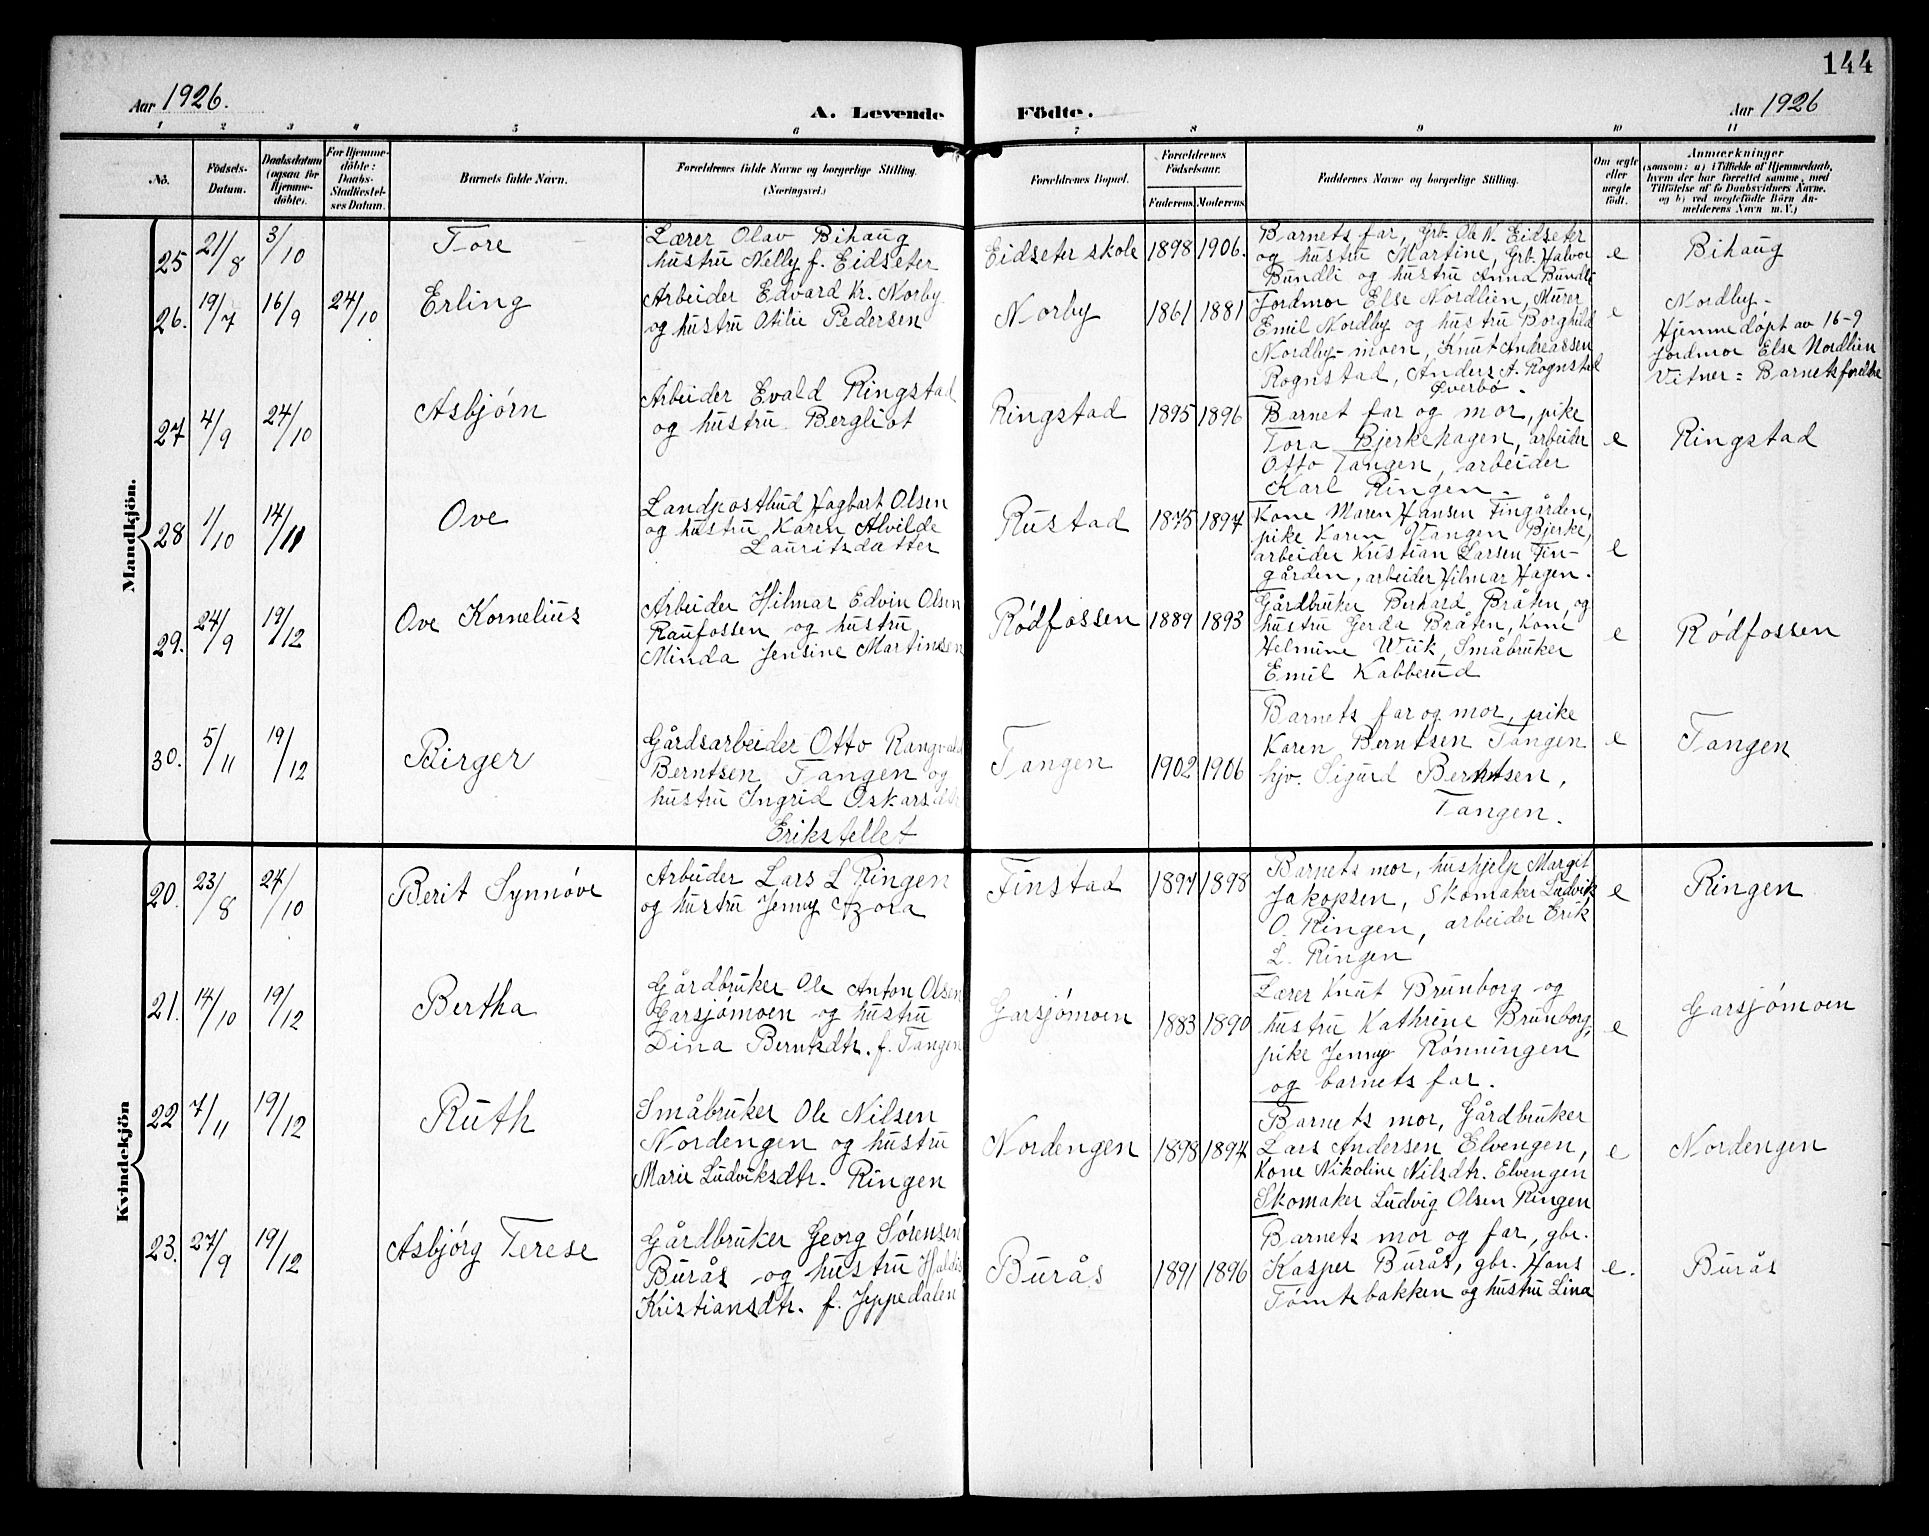 144
Aar 1926.
A. Levende Födte.
Aar 1926
1 2 3 4 5 6 7 8 9 10 11
No.
Födsels-
Datum.
Daabsdatum
(ogsaa for
Hjemme-
döbte).
For Hjemme-
döbte:
Daabs-
Stadfæstel-
ses Datum.
Barnets fulde Navn.
Forældrenes fulde Navne og borgerlige Stilling.
(Næringsvei.)
Forældrenes Bopæl.
Forældrenes
Födselsaar.
Faderens. Moderens.
Faddernes Navne og borgerlige Stilling.
Om ægte
eller
uægte
født.
Anmærkninger
(saasom: a) i Tilfælde af Hjemmedaab,
hvem der har forrettet samme, med
Tilföielse af to Daabsvidners Navne,
og b) ved uægtefödte Börn An-
melderens Navn m. V.)
Mandkjön.
25 21/8 3/10
Tore
Lærer Olav Bihaug
hustru Nelly f. Eidseter
Eidseter skole 1898 1906.
Barnets far, Grb. Ole K. Eidseter
og hustru Martine, Grb. Halvor
Bundli og hustru Anna Bundli
e
Bihaug
26. 19/7 16/9 24/10
Erling
Arbeider Edvard Kr. Norby
og hustru Otilie Pedersen
Norby 1861 1881
Jordmor Else Nordlien, Murer
Emil Nordby og hustru Borghild
Nordby-moen, Knut Andreassen
Rognstad, Anders A. Rognstad
Øverbø.
e
Nordby-
Hjemmedøpt av 16-9
Jordmor Else Nordlien
Vitner: Barnets foreldre
27 4/9 24/10
Asbjørn
Arbeider Evald Ringstad
og hustru Bergliot
Ringstad 1895 1896
Barnet far og mor, pike
Tora Bjerkehagen, arbeider
Otto Tangen, arbeider
Karl Ringen.
e
Ringstad
28 1/10 14/11
Ove
Landpostbud Hagbart Olsen
og hustru Karen Alvilde
Lauritsdatter
Rustad 1875 1894
Kone Maren Hansen Fingården,
pike Karen Vangen Bjerke,
arbeider Kristian Larsen Fin-
gården, arbeider Hilmar Hagen.
e
29. 24/9 19/12
Ove Kornelius
Arbeider Hilmar Edvin Olsen
Raufossen og hustru
Minda Jensine Martinsen
Rødfossen 1889 1893
Gårdbruker Berhard Bråten, og
hustru Gerda Bråten, Kone
Helmine Wiik, Småbruker
Emil Kabberud
e
Rødfossen
30. 5/11 19/12
Birger
Gårdsarbeider Otto Rangvald
Berntsen Tangen og
hustru Ingrid Oskarsdtr
Erikstellet
Tangen 1902 1906
Barnets far og mor, pike
Karen Berntsen Tangen
hjv. Sigurd Berntsen,
Tangen.
e
Tangen
Kvindekjön
20. 23/8 24/10
Berit Synnøve
Arbeider Lars L Ringen
og hustru Jenny Azora
Finstad 1897 1898
Barnets mor, hushjelp Marget
Jakopsen, Skomaker Ludvik
O. Ringen, arbeider Erik
L. Ringen
e
Ringen
21. 14/10 19/12
Bertha
Gårdbruker Ole Anton Olsen
Garsjømoen og hustru
Dina Berntsdtr. f. Tangen
Garsjømoen 1883 1890
Lærer Knut Brunborg og
hustru Kathrine Brunborg,
pike Jenny Rønningen
og barnets far.
e
Garsjømoen
22 7/11 19/12
Ruth
Småbruker Ole Nilsen
Nordengen og hustru
Marie Ludviksdtr. Ringen
Nordengen 1898 1894
Barnets mor, Gårdbruker
Lars Andersen Elvengen,
Kone Nikoline Nilsdtr. Elvengen
Skomaker Ludvig Olsen Ringen
e
Nordengen
23. 27/9 19/12
Asbjørg Terese
Gårdbruker Georg Sørensen
Burås og hustru
Kristiansdtr. f. Jeppedalen
Burås 1891 1896
Barnets mor og far, gbr.
Kasper Burås, gbr. Hans
Tømtebakken og hustru Lina
e.
Burås